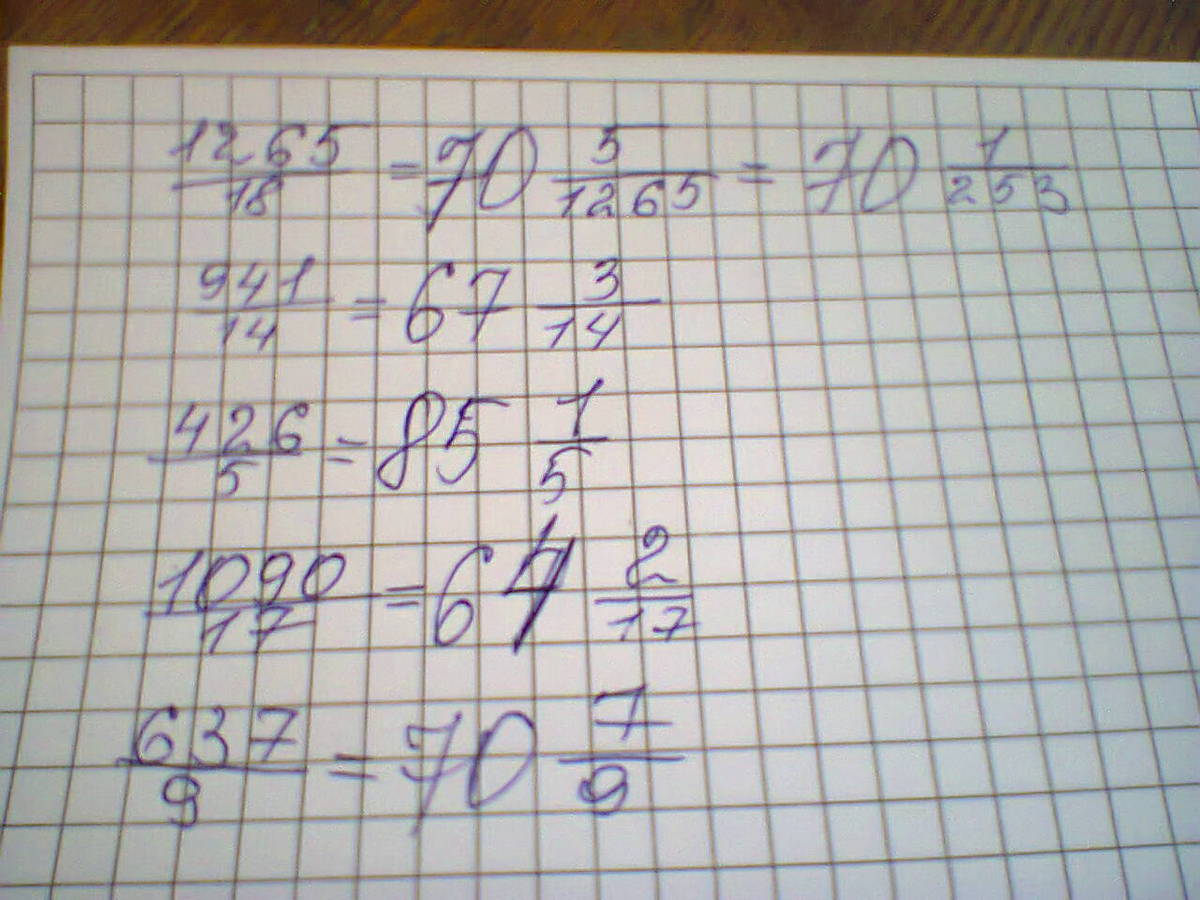 1265/18 = 70 5/1265 = 70 1/253
941/14 = 67 3/14
426/5 = 85 1/5
1090/17 = 64 2/17
637/9 = 70 7/9